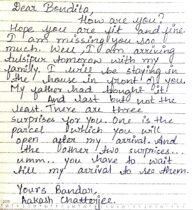 Dear Bondita,
How are you?
Hope you are fit and fine.
I am missing you too
much. Well I am arriving
tulsipur tomorrow with my
family. I will be staying in
the house in front of you.
My father had bought it!
And last but not the
least. There are three
surprises for you. One is the
parcel which you will
open after my arrival. And
the other two surprises..
umm.. you have to wait
till my arrival to see them.
Yours Bandar,
Aakash Chatterjee.